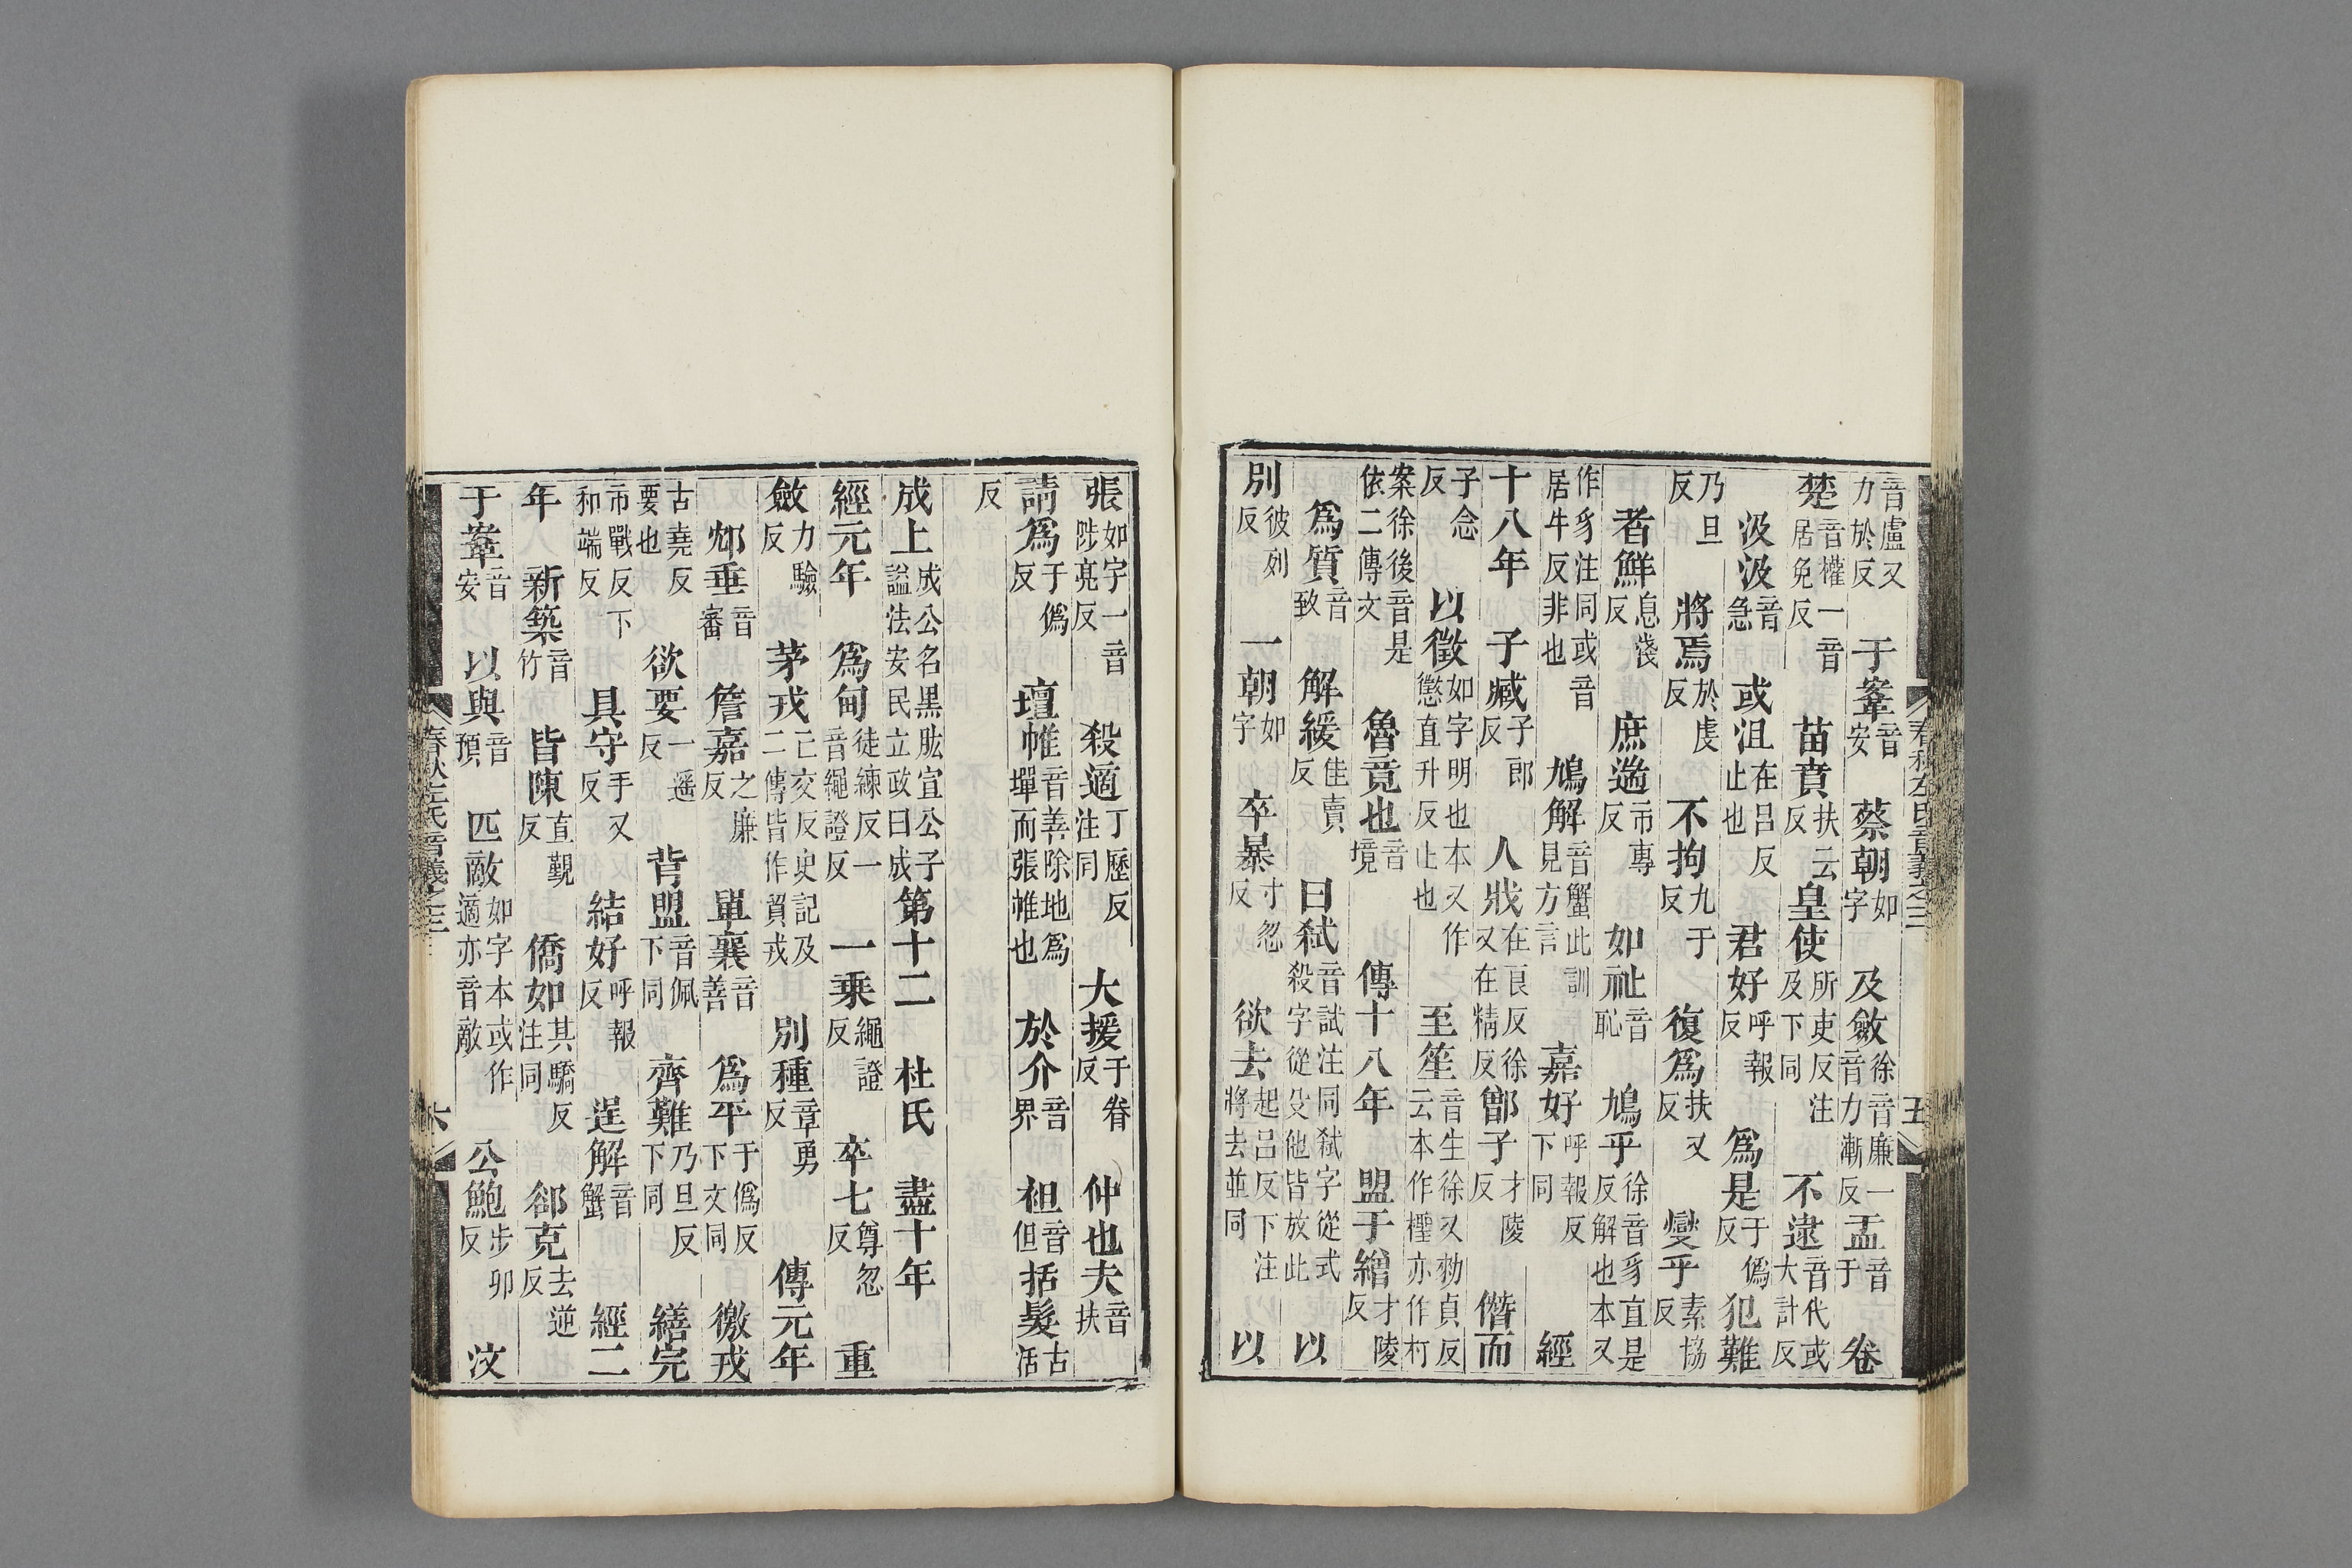 音盧又力於反 于鞌音安 蔡朝如字 及斂徐音廉一音力漸反 盂音于 卷
楚音權一音居免反 苗賁扶云反皇使所吏反注及下同 不逮音代或大計反
汲汲音急 或沮在呂反止也 君好呼報反 爲是于僞反 犯難
乃旦反 將焉於虔反 不拘九于反 復爲扶又反 燮乎素協反
者鮮息淺反 庶遄市專反 如祉音恥 鳩乎徐音豸直是反解也本又
作豸注同或音居牛反非也 鳩解音蟹此訓見方言 嘉好呼報反下同 經
十八年 子臧子郎反 人戕在良反徐又在精反 鄫子才陵反 僭而
子念反 以徵如字明也本又作懲直升反止也 至笙音生徐又勑貞反云本作檉亦作朾
案徐後音是依二傳文 魯竟也音境 傳十八年 盟于繒才陵反
爲質音致 解緩佳賣反 曰弑音試注同弑字從式殺字從殳他皆放此 以
別彼列反 一朝如字 卒暴寸忽反 欲去起呂反下注將去並同 以
春秋左氏音義之三 五
張如字一音陟亮反 殺適丁歷反注同 大援于眷反 仲也夫音扶
請爲于僞反 壇帷音善除地爲墠而張帷也 於介音界 袒音但括髮古活
反
成上成公名黑肱宣公子謚法安民立政曰成第十二 杜氏 盡十年
經元年 爲甸徒練反一音繩證反 一乘繩證反 卒七尊忽反 重
斂力驗反 茅戎亡交反史記及二傳皆作貿戎 別種章勇反 傳元年
邥垂音審 詹嘉之廉反 單襄音善 爲平于僞反下文同 徼戎
古堯反要也 欲要一遥反 背盟音佩下同 齊難乃旦反下同 繕完
市戰反下和端反 具守手又反 結好呼報反 逞解音蟹 經二
年 新築音竹 皆陳直覲反 僑如其驕反注同 郤克去逆反
于鞌音安 以與音預 匹敵如字本或作適亦音敵 公鮑步卯反 汶
春秋左氏音義之三 六